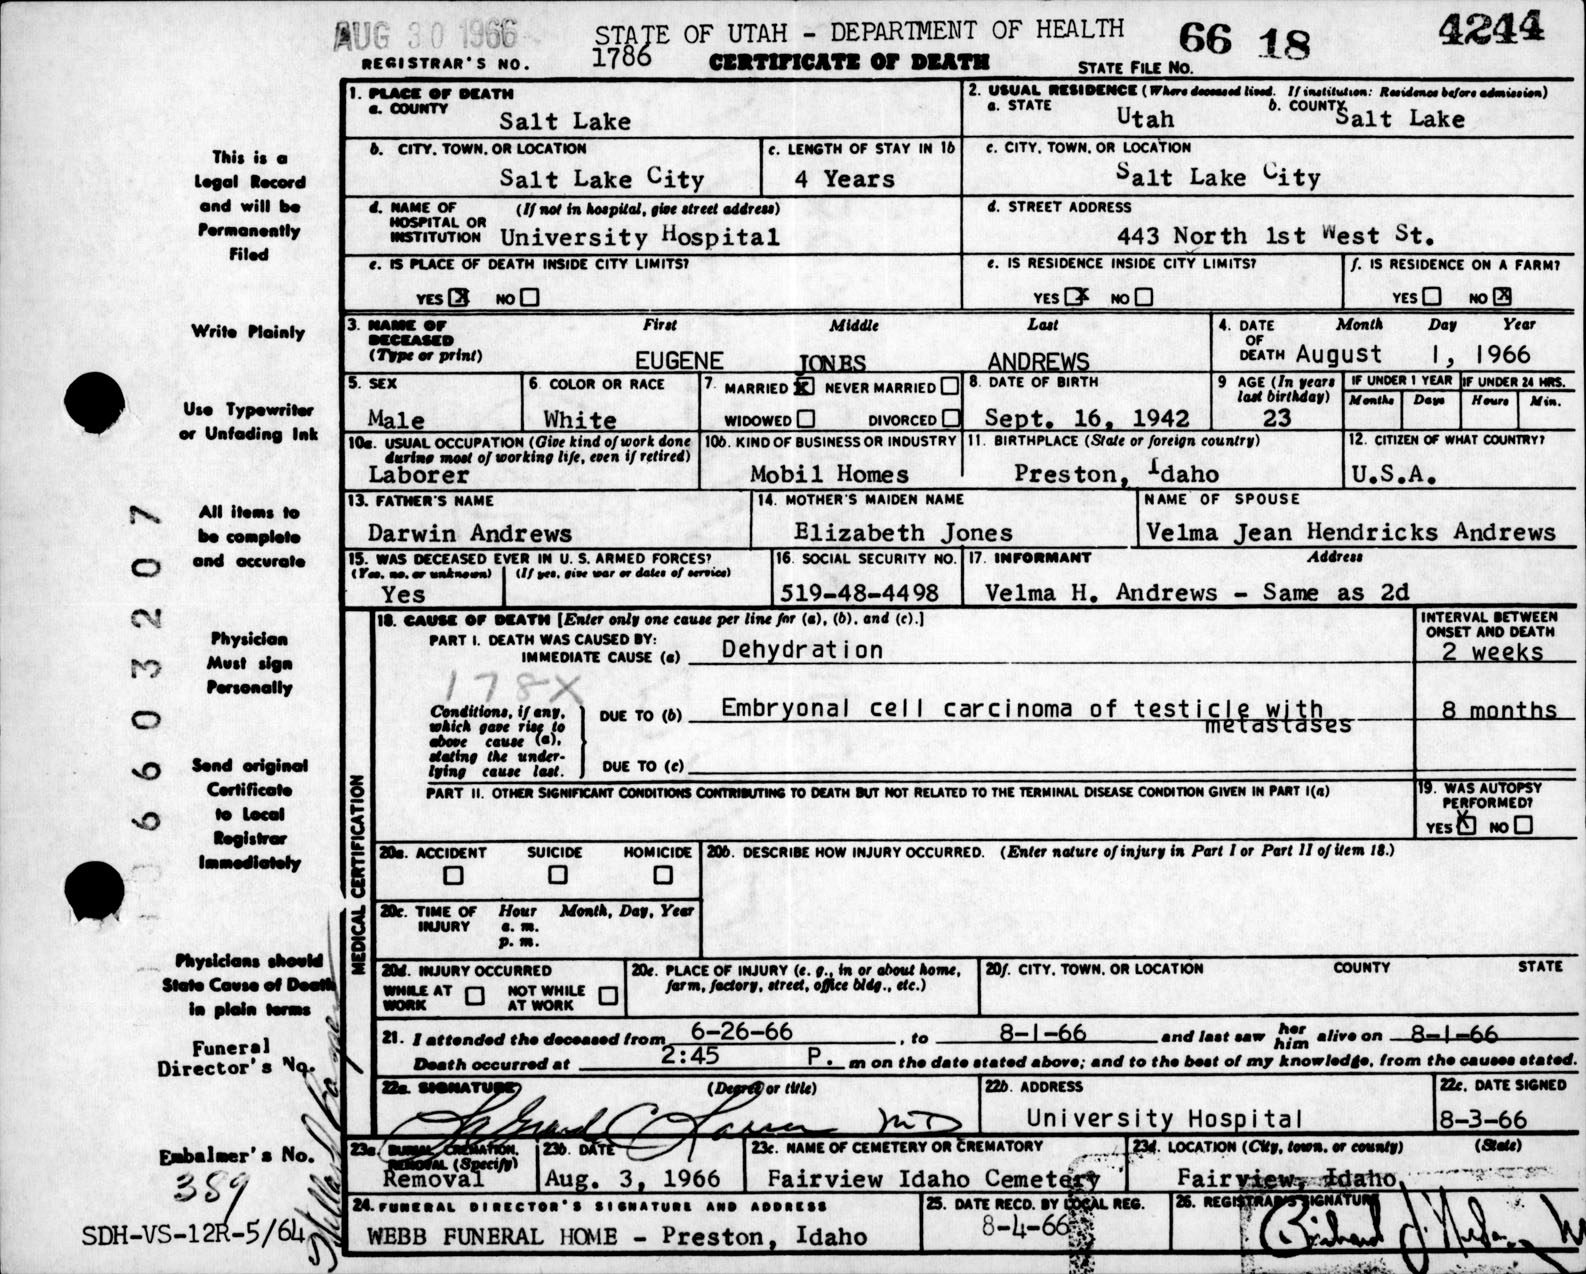 AUG 30 1966 STATE OF UTAH - DEPARTMENT OF HEALTH 66 18 4244
REGISTRAR'S NO. 1786 CERTIFICATE OF DEATH STATE FILE NO.
1. PLACE OF DEATH
a. COUNTY
Salt Lake
2. USUAL RESIDENCE (Where deceased lived. If institution: Residence before admission)
a. STATE Utah b. COUNTY Salt Lake
b. CITY, TOWN, OR LOCATION
Salt Lake City
c. LENGTH OF STAY IN 1b
4 Years
c. CITY, TOWN, OR LOCATION
Salt Lake City
d. NAME OF HOSPITAL OR INSTITUTION (If not in hospital, give street address)
University Hospital
d. STREET ADDRESS
443 North 1st West St.
e. IS PLACE OF DEATH INSIDE CITY LIMITS?
YES X NO
e. IS RESIDENCE INSIDE CITY LIMITS?
YES X NO
f. IS RESIDENCE ON A FARM?
YES NO X
3. NAME OF DECEASED (Type or print)
First Middle Last
EUGENE JONES ANDREWS
4. DATE OF DEATH Month Day Year
August 1, 1966
5. SEX
Male
6. COLOR OR RACE
White
7. MARRIED X NEVER MARRIED
WIDOWED DIVORCED
8. DATE OF BIRTH
Sept. 16, 1942
9 AGE (In years last birthday)
23
IF UNDER 1 YEAR
Months Days
IF UNDER 24 HRS.
Hours Min.
10a. USUAL OCCUPATION (Give kind of work done during most of working life, even if retired)
Laborer
10b. KIND OF BUSINESS OR INDUSTRY
Mobil Homes
11. BIRTHPLACE (State or foreign country)
Preston, Idaho
12. CITIZEN OF WHAT COUNTRY?
U.S.A.
13. FATHER'S NAME
Darwin Andrews
14. MOTHER'S MAIDEN NAME
Elizabeth Jones
NAME OF SPOUSE
Velma Jean Hendricks Andrews
15. WAS DECEASED EVER IN U. S. ARMED FORCES?
(Yes, no, or unknown) (If yes, give war or dates of service)
Yes
16. SOCIAL SECURITY NO.
519-48-4498
17. INFORMANT Address
Velma H. Andrews - Same as 2d
MEDICAL CERTIFICATION
18. CAUSE OF DEATH [Enter only one cause per line for (a), (b), and (c).]
INTERVAL BETWEEN ONSET AND DEATH
PART I. DEATH WAS CAUSED BY:
IMMEDIATE CAUSE (a) Dehydration 2 weeks
178X
Conditions, if any, which gave rise to above cause (a), stating the underlying cause last.
DUE TO (b) Embryonal cell carcinoma of testicle with metastases 8 months
DUE TO (c)
PART II. OTHER SIGNIFICANT CONDITIONS CONTRIBUTING TO DEATH BUT NOT RELATED TO THE TERMINAL DISEASE CONDITION GIVEN IN PART I(a)
19. WAS AUTOPSY PERFORMED?
YES X NO
20a. ACCIDENT SUICIDE HOMICIDE
20b. DESCRIBE HOW INJURY OCCURRED. (Enter nature of injury in Part I or Part II of item 18.)
20c. TIME OF INJURY Hour Month, Day, Year
a. m.
p. m.
20d. INJURY OCCURRED
WHILE AT WORK NOT WHILE AT WORK
20e. PLACE OF INJURY (e. g., in or about home, farm, factory, street, office bldg., etc.)
20f. CITY, TOWN, OR LOCATION COUNTY STATE
21. I attended the deceased from 6-26-66, to 8-1-66 and last saw her him alive on 8-1-66
Death occurred at 2:45 P. m on the date stated above; and to the best of my knowledge, from the causes stated.
22a. SIGNATURE (Degree or title)
MD
22b. ADDRESS
University Hospital
22c. DATE SIGNED
8-3-66
23a. BURIAL, CREMATION, REMOVAL (Specify)
Removal
23b. DATE
Aug. 3, 1966
23c. NAME OF CEMETERY OR CREMATORY
Fairview Idaho Cemetery
23d. LOCATION (City, town, or county) (State)
Fairview, Idaho
24. FUNERAL DIRECTOR'S SIGNATURE AND ADDRESS
WEBB FUNERAL HOME - Preston, Idaho
25. DATE RECD. BY LOCAL REG.
8-4-66
26. REGISTRAR'S SIGNATURE
This is a
Legal Record
and will be
Permanently
Filed
Write Plainly
Use Typewriter
or Unfading Ink
All items to
be complete
and accurate
Physician
Must sign
Personally
Send original
Certificate
to Local
Registrar
Immediately
Physicians should
State Cause of Death
in plain terms
Funeral
Director's No.
Embalmer's No.
389
SDH-VS-12R-5/64
6603207